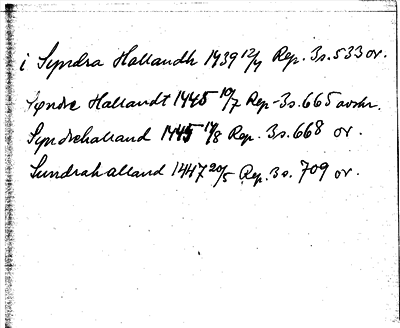 i Syndra Hallandh 1439 12/4 Rep. 3 s. 533 or.
Syndre Hallandt 1445 10/7 Rep. 3 s. 665 avskr.
Syndrehalland 1445 17/8 Rep. 3 s. 668 or.
Sundrahalland 1447 20/5 Rep. 3 s. 709 or.